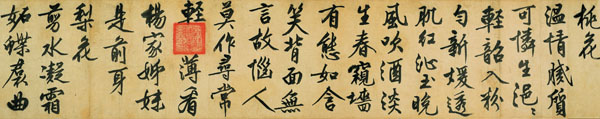 桃花
溫情膩質
可憐生浥〻
輕韶入粉
勻新暖透
肌紅沁玉晚
風吹酒淡
生春窺墻
有態如含
笑背面無
言故惱人
莫作尋常
輕薄看
楊家姊妹
是前身
梨花
剪水凝霜
妬蝶帬曲